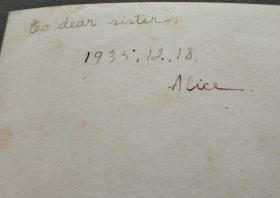 To dear sister,
1935.12.18.
Alice.